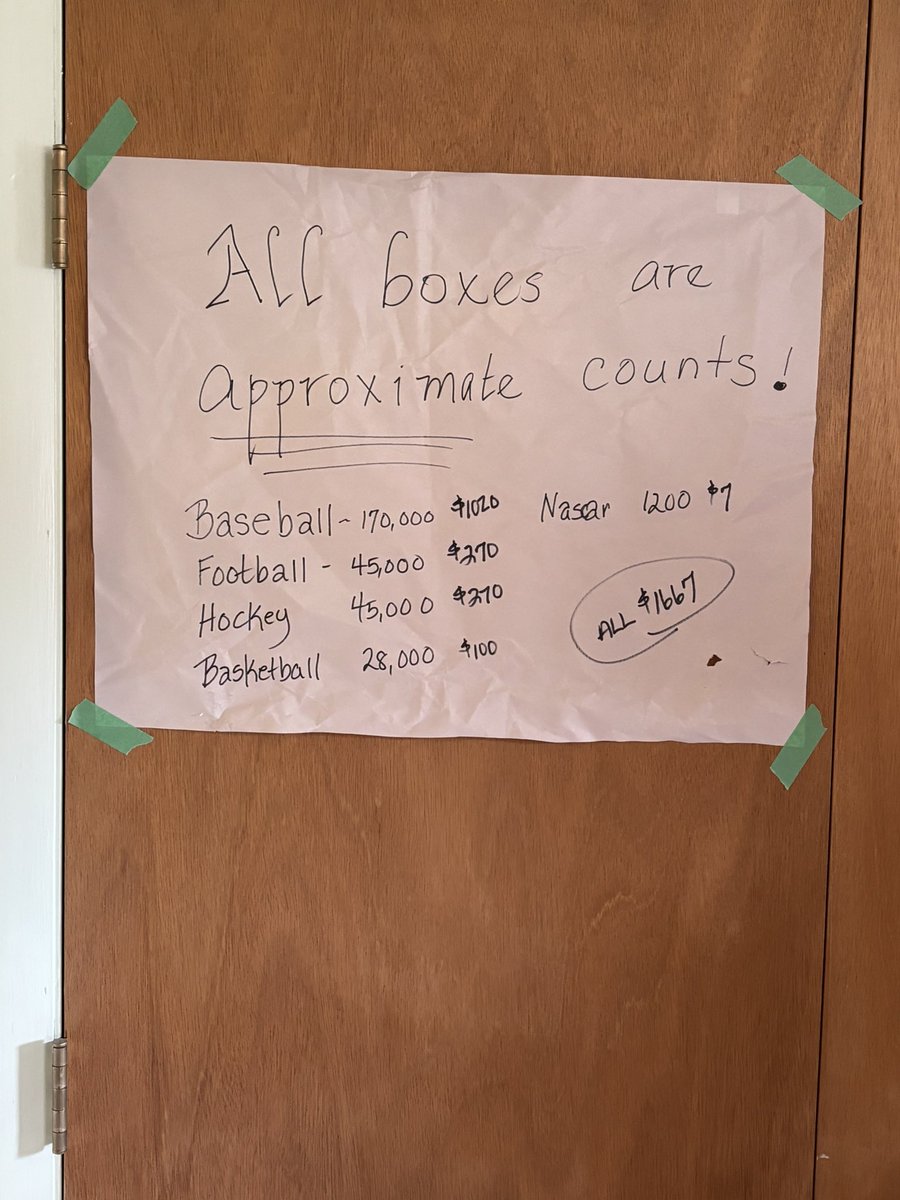 All boxes are
approximate counts!
Baseball - 170,000 $1020
Football - 45,000 $270
Hockey 45,000 $270
Basketball 28,000 $100
Nascar 1200 $7
ALL $1667